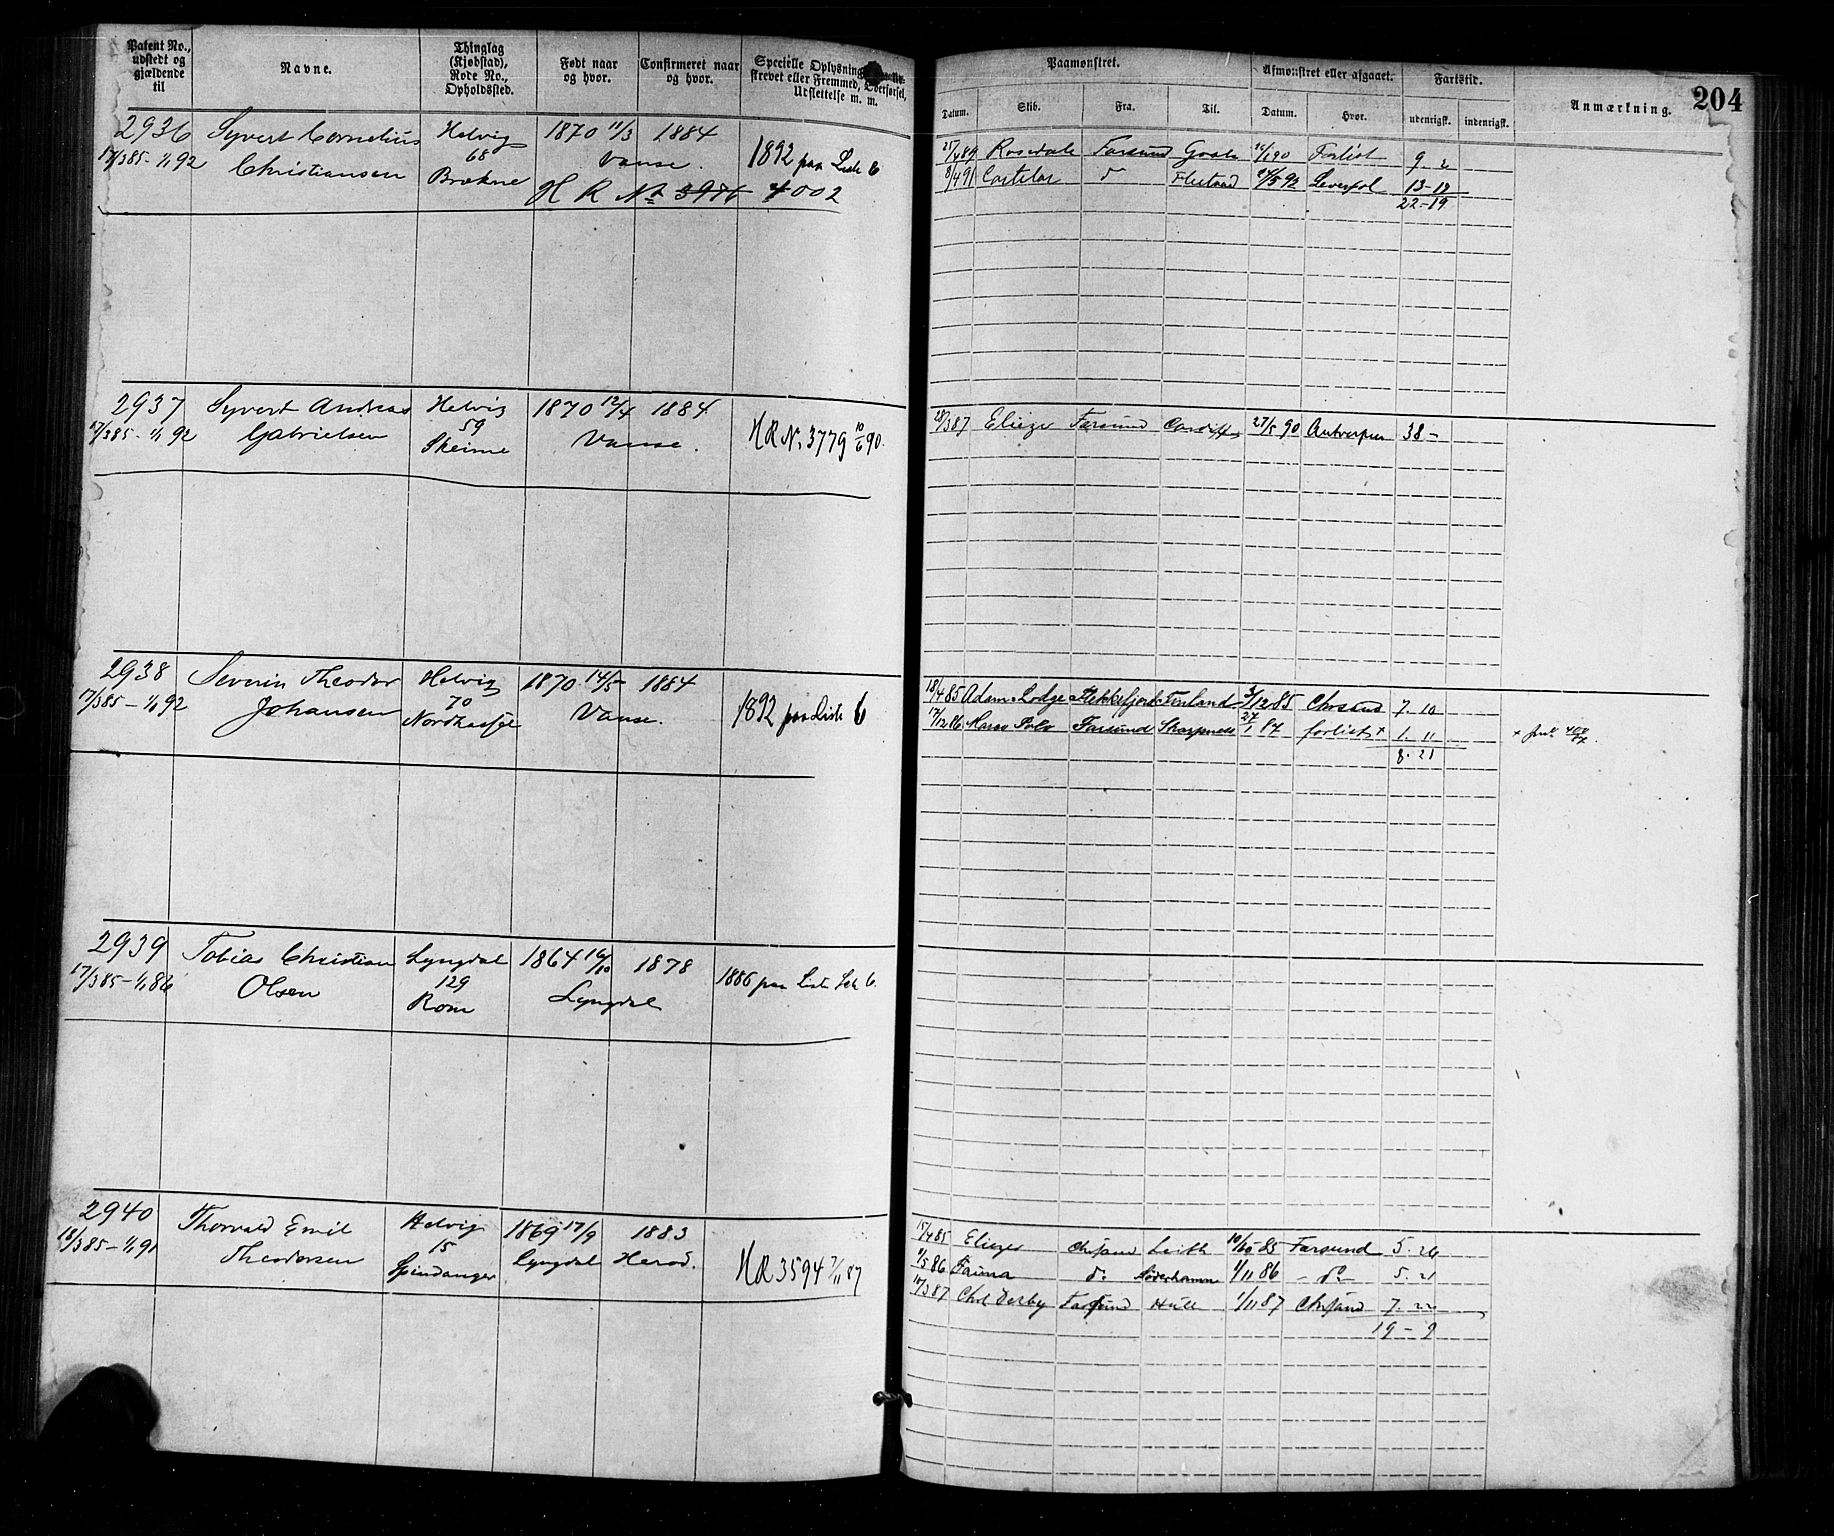 Patent No., udstedt og gjældende til
Navne.
Thinglag (Kjøbstad), Rode No., Opholdssted.
Født naar og hvor.
Confirmeret naar og hvor.
Specielle Oplysning
skrevet eller Fremmed, Overførsel,
Udslettelse m. m.
Paamønstret.
Afmønstret eller afgaaet.
Fartstid.
Anmærkning.
204
Datum.
Skib.
Fra.
Til.
Datum.
Hvor.
udenrigsk.
indenrigsk.
2936
17/3 85 - 1/1 92
Syvert Cornelius
Christiansen
Helvig
68
Brækne
1870 11/3 1884
Vanse.
H R No 3976 4002
1892 paa Liste 6
25/4 89 Rosedale Farsund 16/1 90 Forlist 9 2
8/4 91 Castelar do 92 13-18
22-19
2937
17/3 85 - 1/1 92
Syvert Andreas
Gabrielsen
Helvig
59
Skeime
1870 12/4 1884
Vanse.
HR No 3779 10/6 90.
28/3 87 Eliezer Farsund Cardiff 27/5 90 Antwerpen 38 -
2938
17/3 85 - 1/1 92
Severin Theodor
Johansen
Helvig
70
Nordhasfje
1870 14/5 1884
Vanse.
1892 paa Liste 6
18/4 85 Adam Lodge Flekkefjord Finland 3/12 85 Chrsand 7. 10
17/12 86 Marco Polo Farsund Skarpnes 27/1 87 forlist x 1. 11
8. 21
2939
17/3 85 - 1/1 86
Tobias Christian
Olsen
Lyngdal
129
Rom
1864 16/10 1878
Lyngdal
1886 paa Liste Litr 6.
2940
18/3 85 - 1/1 91
Thorvald Emil
Theodorsen
Helvig
15
Spindanger
1869 17/9 1883
Lyngdal Herod.
HR 3594 7/11 87
15/4 85 Eliezer Chrsand Leith 10/10 85 Farsund 5. 26
9/5 86 Fauna do Söderhamn 1/11 86 - do - 5. 21
10/3 87 Chrl Derby Farsund Hull 1/11 87 Chrsand 7. 22
19 - 9